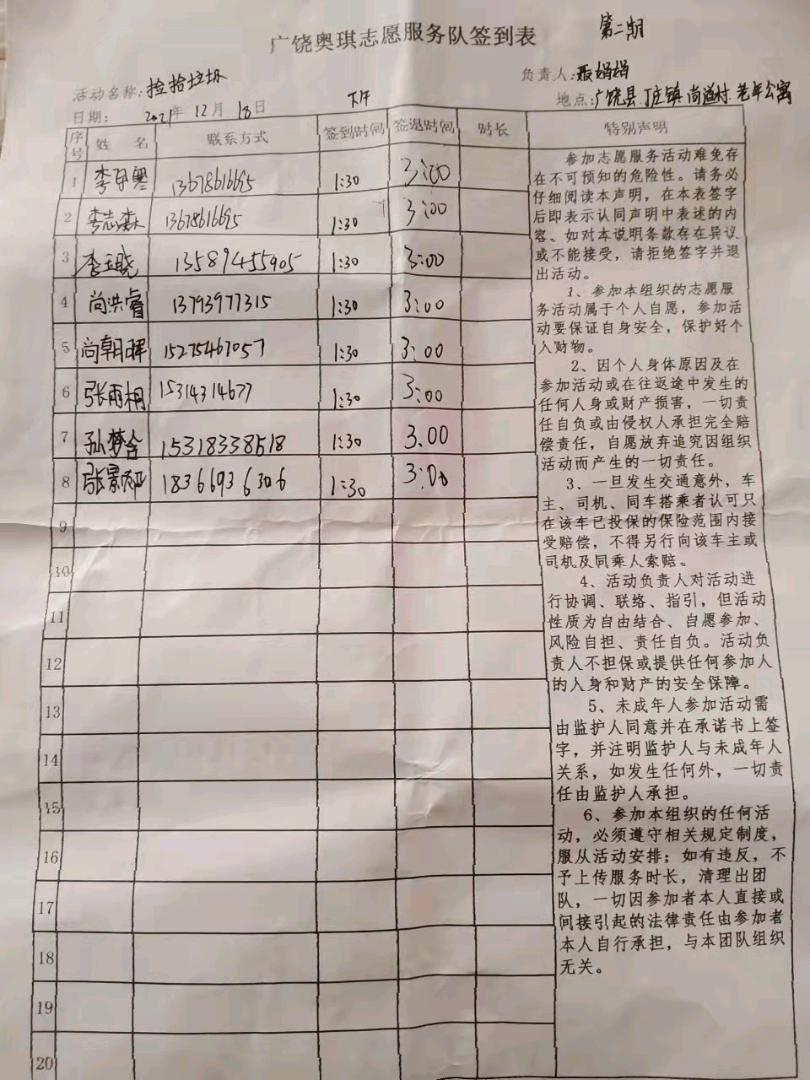 广饶奥琪志愿服务队签到表 第二期
活动名称:捡拾垃圾 负责人:聂娟娟
日期: 2021年 12月 18日 下午 地点:广饶县丁庄镇尚道村老年公寓
序号 姓 名 联系方式 签到时间 签退时间 时长 特别声明
1 13678616695 1:30 3:00
2 李志森 13678616695 1:30 3:00
3 李玉晓 13589455905 1:30 3:00
4 尚洪睿 13793977315 1:30 3:00
5 尚朝晖 15275467057 1:30 3:00
6 张雨相 15314314677 1:30 3:00
7 孙梦含 15318338518 1:30 3.00
8 张景 18366936306 1:30 3:00
9
10
11
12
13
14
15
16
17
18
19
20
参加志愿服务活动难免存
在不可预知的危险性。请务必
仔细阅读本声明，在本表签字
后即表示认同声明中表述的内
容。如对本说明条款存在异议
或不能接受，请拒绝签字并退
出活动。
1、参加本组织的志愿服
务活动属于个人自愿，参加活
动要保证自身安全，保护好个
人财物。
2、因个人身体原因及在
参加活动或在往返途中发生的
任何人身或财产损害，一切责
任自负或由侵权人承担完全赔
偿责任，自愿放弃追究因组织
活动而产生的一切责任。
3、一旦发生交通意外，车
主、司机、同车搭乘者认可只
在该车已投保的保险范围内接
受赔偿，不得另行向该车主或
司机及同乘人索赔。
4、活动负责人对活动进
行协调、联络、指引，但活动
性质为自由结合、自愿参加、
风险自担、责任自负。活动负
责人不担保或提供任何参加人
的人身和财产的安全保障。
5、未成年人参加活动需
由监护人同意并在承诺书上签
字，并注明监护人与未成年人
关系，如发生任何外，一切责
任由监护人承担。
6、参加本组织的任何活
动，必须遵守相关规定制度，
服从活动安排；如有违反，不
予上传服务时长，清理出团
队，一切因参加者本人直接或
间接引起的法律责任由参加者
本人自行承担，与本团队组织
无关。